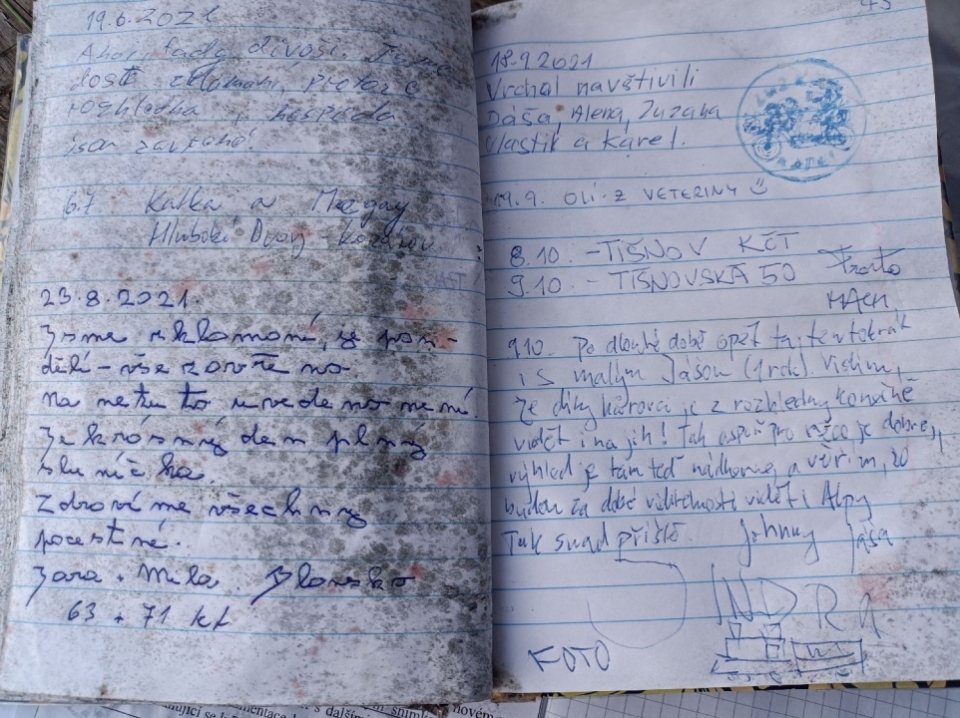 19.6.2021
Ahoj, tady divoši. Jsme
dost zklamaní, protože
rozhledna i hospoda
jsou zavřené!
6.7 Katka a
Hluboké Dvory
23.8.2021.
Jsme zklamaní, je pon-
dělí - vše zavřeno
na netu to uvedeno není!
Je krásný den plný
sluníčka.
Zdravíme všechny
pocestné.
Jara + Mila Blansko
63 + 71 let
18.9.2021
Vrchol navštívili
Dáša, Alena, Zuzana
Vlastik a Karel.
19.9. OLI Z VETERINY
8.10. - TIŠNOV KČT
9.10. - TIŠNOVSKÁ 50
MACH
9.10. Po dlouhé době opět tu, tentokrát
i s malým Jášou (1 rok). Vidím,
že díky kůrovci, je z rozhledny konečně
vidět i na jih! Tak aspoň pro něco je dobrej,
výhled je tam teď nádhernej a věřím, že
budou za dobré viditelnosti vidět i Alpy
Tak snad příště. Johnny Jáša
JINDRA
KOTO